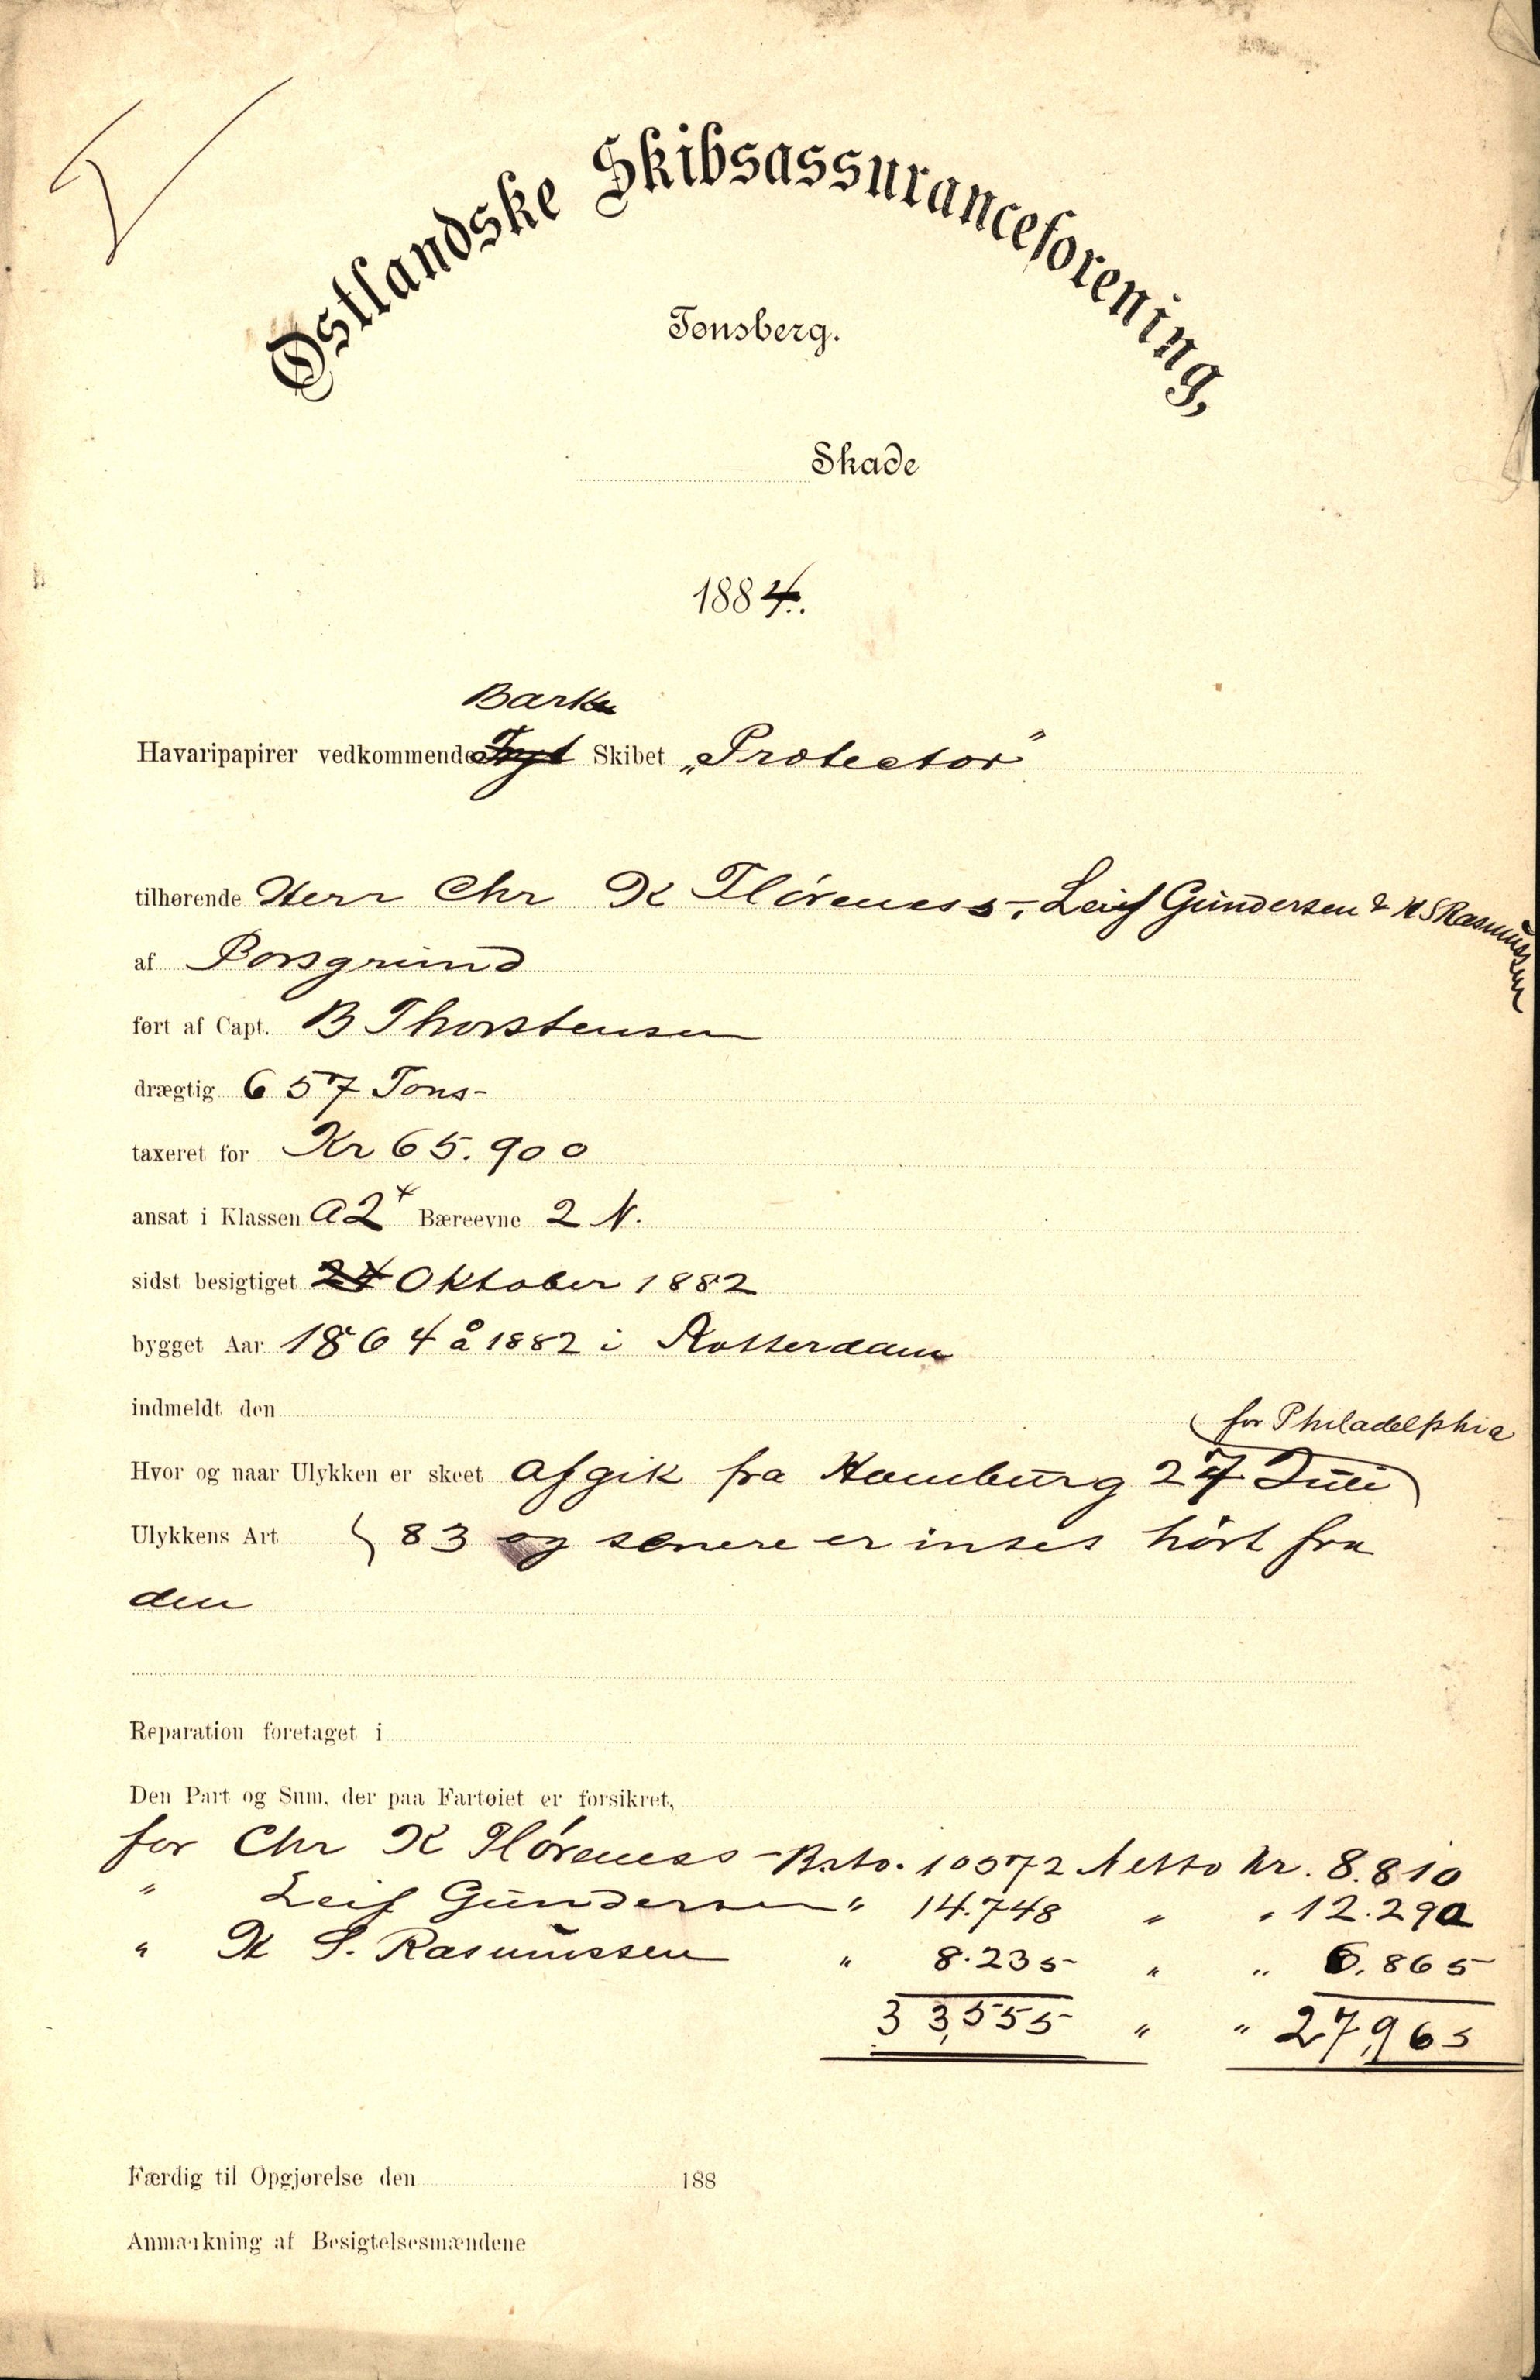 Østlandske Skibsassuranceforening,
Tønsberg.
Skade
1884.
Bark
Havaripapirer vedkommende Skibet „Protector"
tilhørende Herr Chr K Flöreness, Leif Gundersen & H S Rasmussen
af Porsgrund
ført af Capt. B Thorstensen
drægtig 657 Tons-
taxeret for Kr 65.900
ansat i Klassen A2 Bæreevne 2 N.
sidst besigtiget 24 Oktober 1882
bygget Aar 1864 å 1882 i Rotterdam
indmeldt den
for Philadelphia
Hvor og naar Ulykken er skeet afgik fra Hamburg 27 Juli
Ulykkens Art 83 og senere er intet hört fra
den
Reparation foretaget i
Den Part og Sum, der paa Fartøiet er forsikret,
for Chr K Flöreness - Brto. 10572 Netto Kr. 8.810
" Leif Gundersen " 14.748 " " 12.290
" H S. Rasmussen " 8.235 " " 6.865
33,555 " " 27,965
Færdig til Opgjørelse den 188
Anmærkning af Besigtelsesmændene